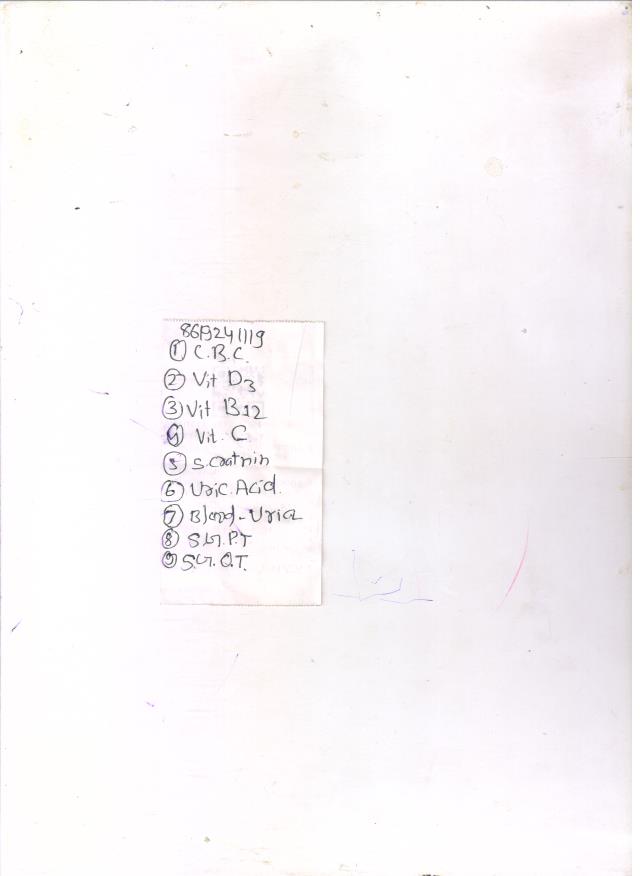 ① C.B.C.
② Vit D3
③ Vit B12
④ Vit. C
⑤ S.cratnin
⑥ Uric. Acid.
⑦ Blood-Uria
⑧ S.G.P.T
⑨ S.G.O.T.